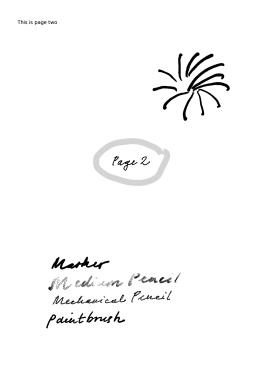 This is page two
Page 2
Marker
Medium Pencil
Mechanical Pencil
Paintbrush